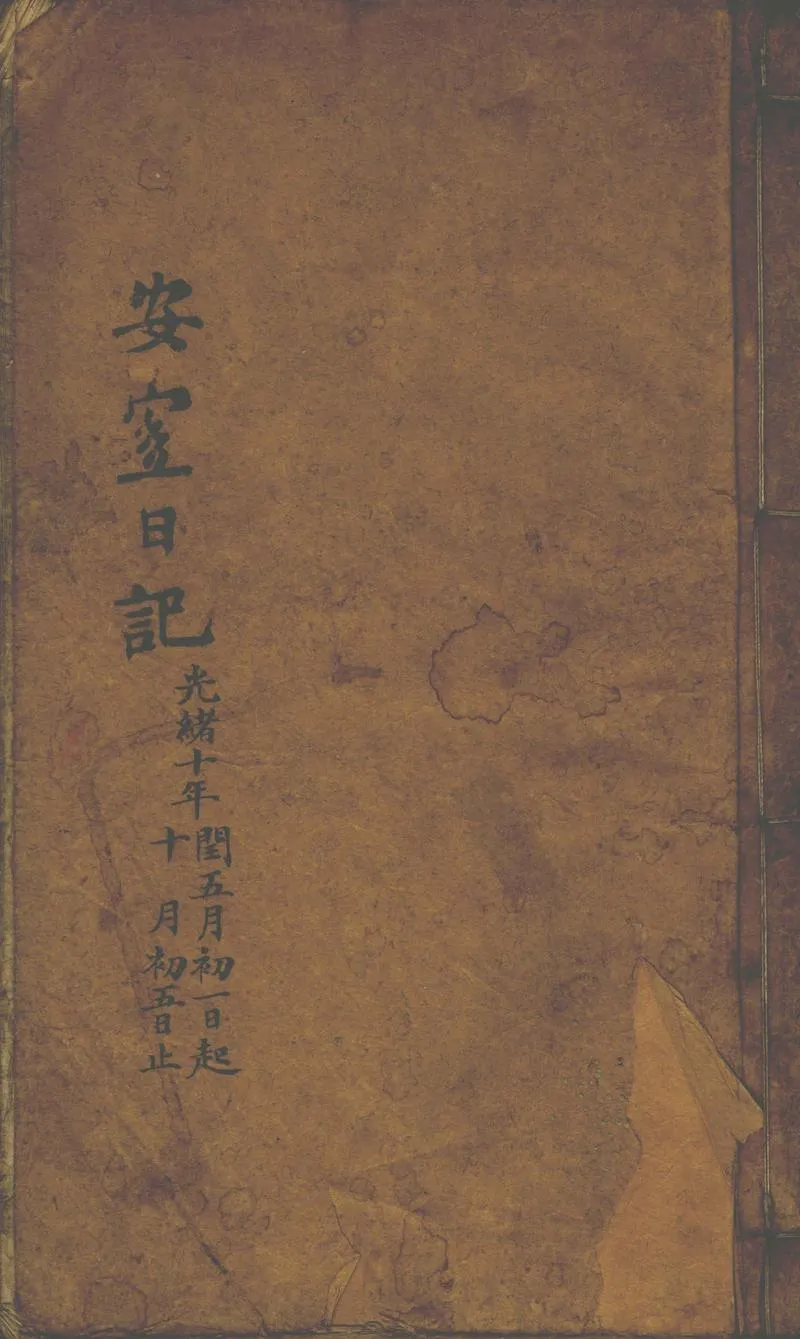 安宜日記
光緒十年
閏五月初一日起
十月初五日止